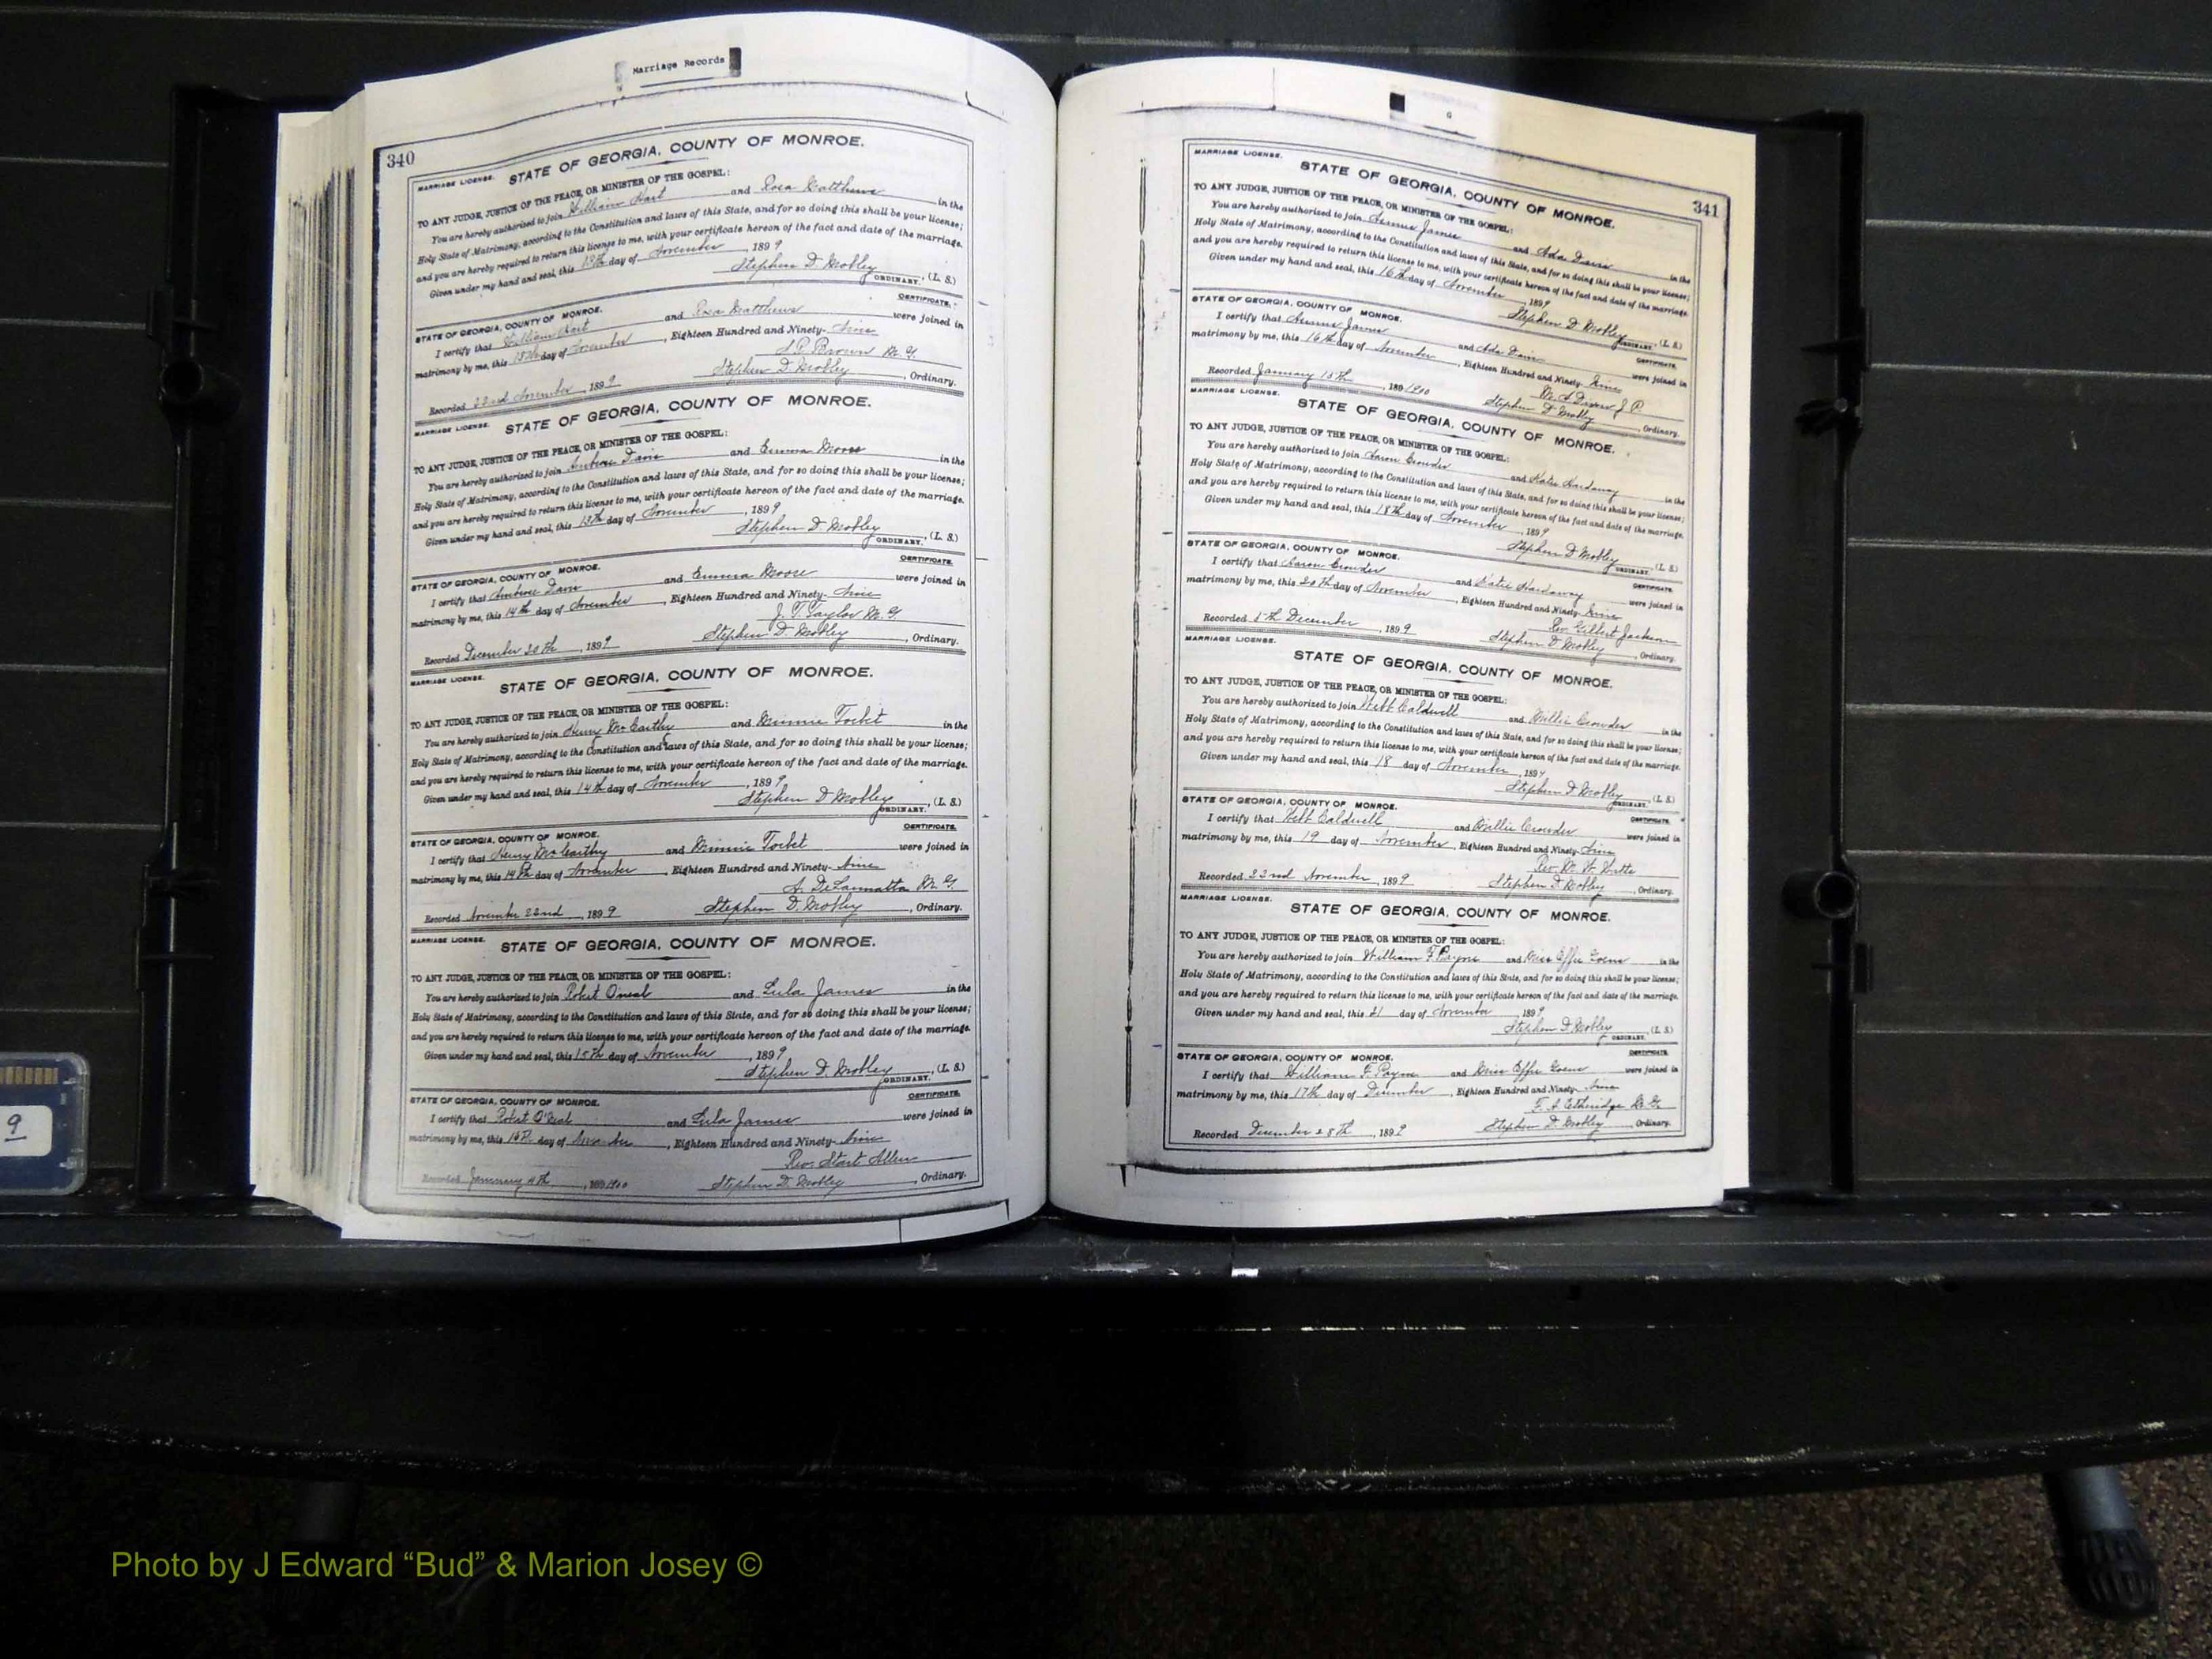 Marriage Records
340
MARRIAGE LICENSE. STATE OF GEORGIA, COUNTY OF MONROE.
TO ANY JUDGE, JUSTICE OF THE PEACE, OR MINISTER OF THE GOSPEL:
You are hereby authorized to join William Hart and Rosa Matthews in the
Holy State of Matrimony, according to the Constitution and laws of this State, and for so doing this shall be your license;
and you are hereby required to return this license to me, with your certificate hereon of the fact and date of the marriage.
Given under my hand and seal, this day of November, 1899
Stephen D. Mobley ORDINARY. (L. S.)
CERTIFICATE.
STATE OF GEORGIA, COUNTY OF MONROE.
I certify that William Hart and Rosa Matthews were joined in
matrimony by me, this day of November, Eighteen Hundred and Ninety- Nine
Brown M. G.
Recorded 22nd November, 1899 Stephen D. Mobley, Ordinary.
MARRIAGE LICENSE. STATE OF GEORGIA, COUNTY OF MONROE.
TO ANY JUDGE, JUSTICE OF THE PEACE, OR MINISTER OF THE GOSPEL:
You are hereby authorized to join Ambrose Davis and Emma Moore in the
Holy State of Matrimony, according to the Constitution and laws of this State, and for so doing this shall be your license;
and you are hereby required to return this license to me, with your certificate hereon of the fact and date of the marriage.
Given under my hand and seal, this 13th day of November, 1899
Stephen D. Mobley ORDINARY. (L. S.)
CERTIFICATE.
STATE OF GEORGIA, COUNTY OF MONROE.
I certify that Ambrose Davis and Emma Moore were joined in
matrimony by me, this 14th day of November, Eighteen Hundred and Ninety- Nine
J. T. Taylor M. G.
Recorded December 20th, 1899 Stephen D. Mobley, Ordinary.
MARRIAGE LICENSE. STATE OF GEORGIA, COUNTY OF MONROE.
TO ANY JUDGE, JUSTICE OF THE PEACE, OR MINISTER OF THE GOSPEL:
You are hereby authorized to join Henry McCarthy and Minnie in the
Holy State of Matrimony, according to the Constitution and laws of this State, and for so doing this shall be your license;
and you are hereby required to return this license to me, with your certificate hereon of the fact and date of the marriage.
Given under my hand and seal, this 14th day of November, 1899
Stephen D. Mobley ORDINARY. (L. S.)
CERTIFICATE.
STATE OF GEORGIA, COUNTY OF MONROE.
I certify that Henry McCarthy and Minnie were joined in
matrimony by me, this 14th day of November, Eighteen Hundred and Ninety- Nine
A. M. G.
Recorded November 22nd, 1899 Stephen D. Mobley, Ordinary.
MARRIAGE LICENSE. STATE OF GEORGIA, COUNTY OF MONROE.
TO ANY JUDGE, JUSTICE OF THE PEACE, OR MINISTER OF THE GOSPEL:
You are hereby authorized to join Robert O'neal and Lula James in the
Holy State of Matrimony, according to the Constitution and laws of this State, and for so doing this shall be your license;
and you are hereby required to return this license to me, with your certificate hereon of the fact and date of the marriage.
Given under my hand and seal, this 15th day of November, 1899
Stephen D. Mobley ORDINARY. (L. S.)
CERTIFICATE.
STATE OF GEORGIA, COUNTY OF MONROE.
I certify that Robert O'Neal and Lula James were joined in
matrimony by me, this 16th day of November, Eighteen Hundred and Ninety- Nine
Rev. Allen
Recorded January, 1900 Stephen D. Mobley, Ordinary.
341
MARRIAGE LICENSE. STATE OF GEORGIA, COUNTY OF MONROE.
TO ANY JUDGE, JUSTICE OF THE PEACE, OR MINISTER OF THE GOSPEL:
You are hereby authorized to join James and Ada Davis in the
Holy State of Matrimony, according to the Constitution and laws of this State, and for so doing this shall be your license;
and you are hereby required to return this license to me, with your certificate hereon of the fact and date of the marriage.
Given under my hand and seal, this 16th day of November, 1899
Stephen D. Mobley ORDINARY. (L. S.)
CERTIFICATE.
STATE OF GEORGIA, COUNTY OF MONROE.
I certify that James and Ada Davis were joined in
matrimony by me, this 16th day of November, Eighteen Hundred and Ninety- Nine
J. P.
Recorded January 15th, 1891900 Stephen D. Mobley, Ordinary.
MARRIAGE LICENSE. STATE OF GEORGIA, COUNTY OF MONROE.
TO ANY JUDGE, JUSTICE OF THE PEACE, OR MINISTER OF THE GOSPEL:
You are hereby authorized to join Aaron Crowder and Katie Hardaway in the
Holy State of Matrimony, according to the Constitution and laws of this State, and for so doing this shall be your license;
and you are hereby required to return this license to me, with your certificate hereon of the fact and date of the marriage.
Given under my hand and seal, this 18th day of November, 1899
Stephen D. Mobley ORDINARY. (L. S.)
CERTIFICATE.
STATE OF GEORGIA, COUNTY OF MONROE.
I certify that Aaron Crowder and Katie Hardaway were joined in
matrimony by me, this 20th day of November, Eighteen Hundred and Ninety- Nine
Rev. Gilbert Jackson
Recorded December, 1899 Stephen D. Mobley, Ordinary.
MARRIAGE LICENSE. STATE OF GEORGIA, COUNTY OF MONROE.
TO ANY JUDGE, JUSTICE OF THE PEACE, OR MINISTER OF THE GOSPEL:
You are hereby authorized to join Webb Caldwell and Millie Crowder in the
Holy State of Matrimony, according to the Constitution and laws of this State, and for so doing this shall be your license;
and you are hereby required to return this license to me, with your certificate hereon of the fact and date of the marriage.
Given under my hand and seal, this 18 day of November, 1899
Stephen D. Mobley ORDINARY. (L. S.)
CERTIFICATE.
STATE OF GEORGIA, COUNTY OF MONROE.
I certify that Webb Caldwell and Millie Crowder were joined in
matrimony by me, this 19 day of November, Eighteen Hundred and Ninety- Nine
Rev.
Recorded 22nd November, 1899 Stephen D. Mobley, Ordinary.
MARRIAGE LICENSE. STATE OF GEORGIA, COUNTY OF MONROE.
TO ANY JUDGE, JUSTICE OF THE PEACE, OR MINISTER OF THE GOSPEL:
You are hereby authorized to join William F. Payne and Miss Effie Goens in the
Holy State of Matrimony, according to the Constitution and laws of this State, and for so doing this shall be your license;
and you are hereby required to return this license to me, with your certificate hereon of the fact and date of the marriage.
Given under my hand and seal, this 21 day of November, 1899
Stephen D. Mobley ORDINARY. (L. S.)
CERTIFICATE.
STATE OF GEORGIA, COUNTY OF MONROE.
I certify that William F. Payne and Miss Effie Goens were joined in
matrimony by me, this 17th day of December, Eighteen Hundred and Ninety- Nine
F. A. Etheridge M. G.
Recorded December 28th, 1899 Stephen D. Mobley, Ordinary.
9
Photo by J Edward “Bud” & Marion Josey ©